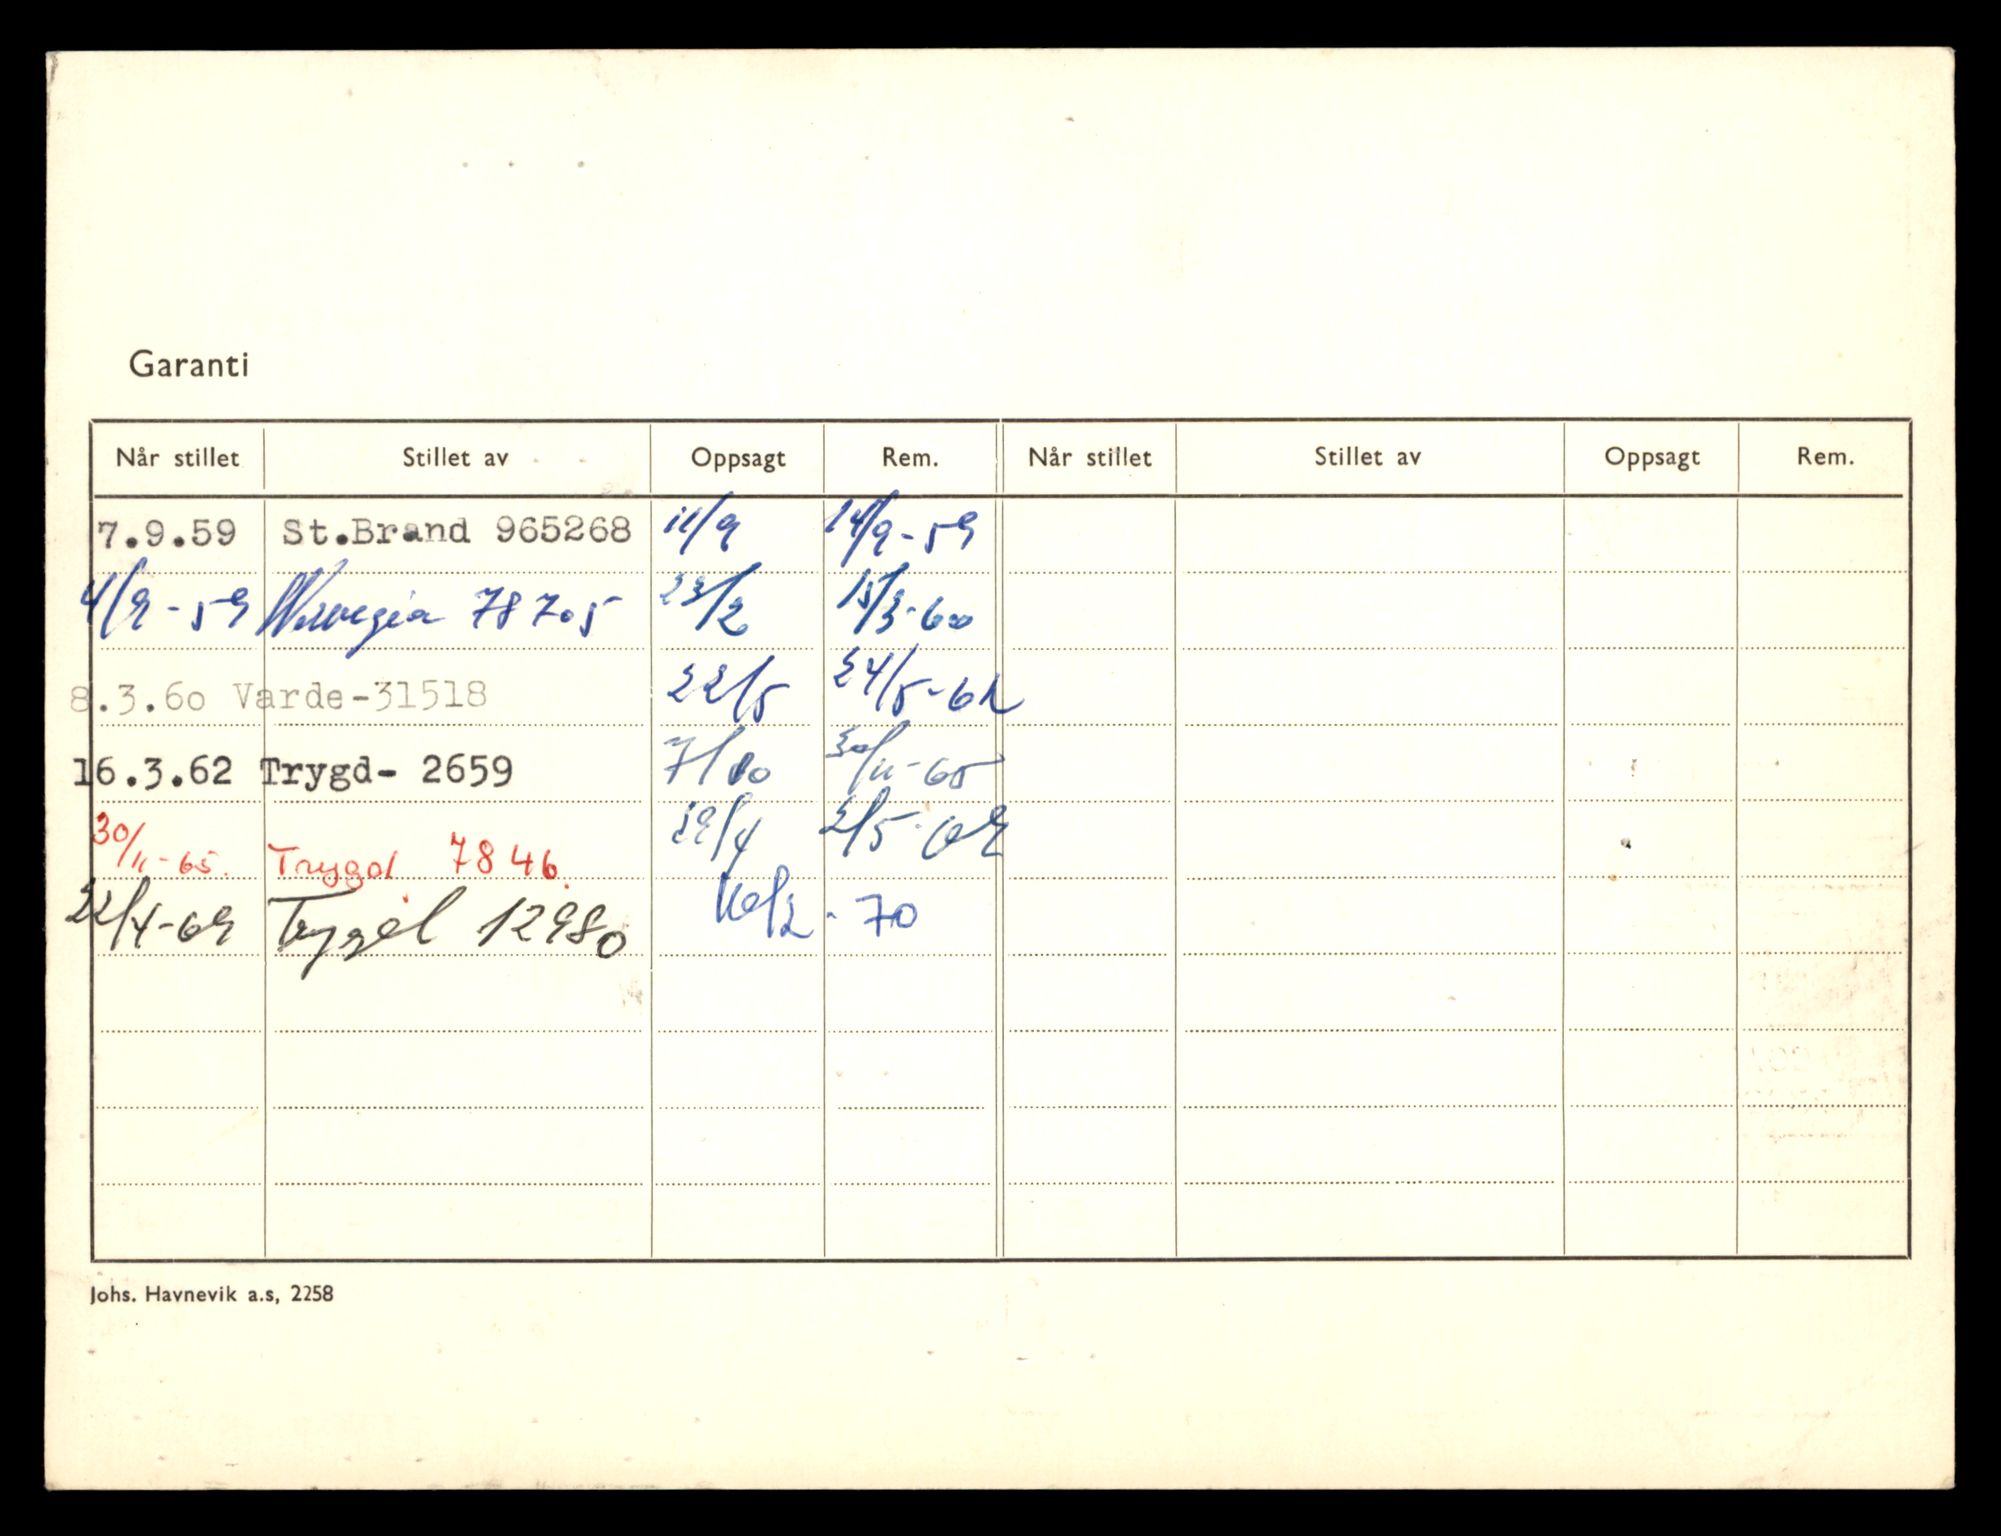 Garanti
Når stillet Stillet av Oppsagt Rem. Når stillet Stillet av Oppsagt Rem.
7.9.59 St.Brand 965268 11/9 14/9-59
4/9-59 Norvegia 78705 23/2 15/3-60
8.3.60 Varde-31518 22/5 24/5-62
16.3.62 Trygd- 2659 7/10 30/11-65
30/11-65. Trygd 7846. 29/4 2/5-69
22/4-69 Trygd 12980 10/2-70
Johs. Havnevik a.s, 2258